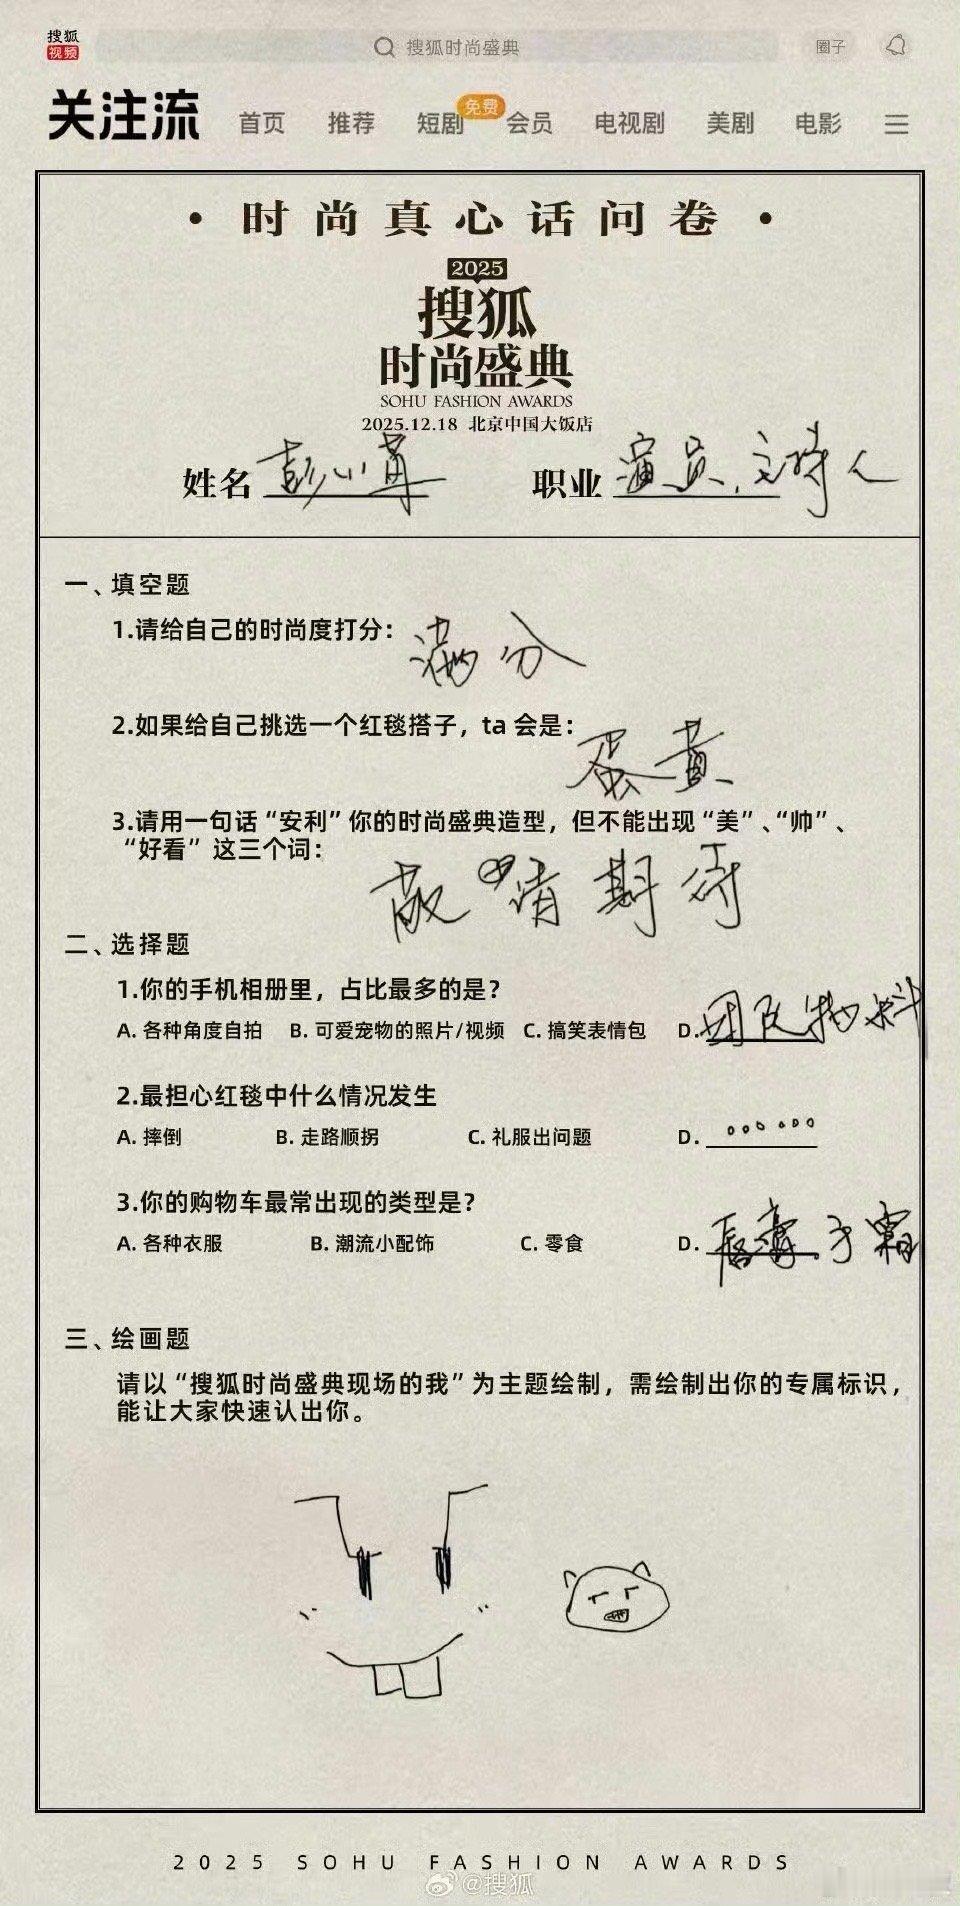 搜狐
视频
搜狐时尚盛典
圈子
关注流 首页 推荐 短剧 免费 会员 电视剧 美剧 电影
·时尚真心话问卷·
2025
搜狐
时尚盛典
SOHU FASHION AWARDS
2025.12.18 北京中国大饭店
姓名 彭小苒 职业 演员、主持人
一、填空题
1.请给自己的时尚度打分：满分
2.如果给自己挑选一个红毯搭子，ta 会是：蛋黄
3.请用一句话“安利”你的时尚盛典造型，但不能出现“美”、“帅”、
“好看”这三个词：敬请期待
二、选择题
1.你的手机相册里，占比最多的是？
A. 各种角度自拍 B. 可爱宠物的照片/视频 C. 搞笑表情包 D. 团队物料
2.最担心红毯中什么情况发生
A. 摔倒 B. 走路顺拐 C. 礼服出问题 D. 。。。。。。
3.你的购物车最常出现的类型是？
A. 各种衣服 B. 潮流小配饰 C. 零食 D. 唇膏、手霜
三、绘画题
请以“搜狐时尚盛典现场的我”为主题绘制，需绘制出你的专属标识，
能让大家快速认出你。
2025 SOHU FASHION AWARDS
@搜狐